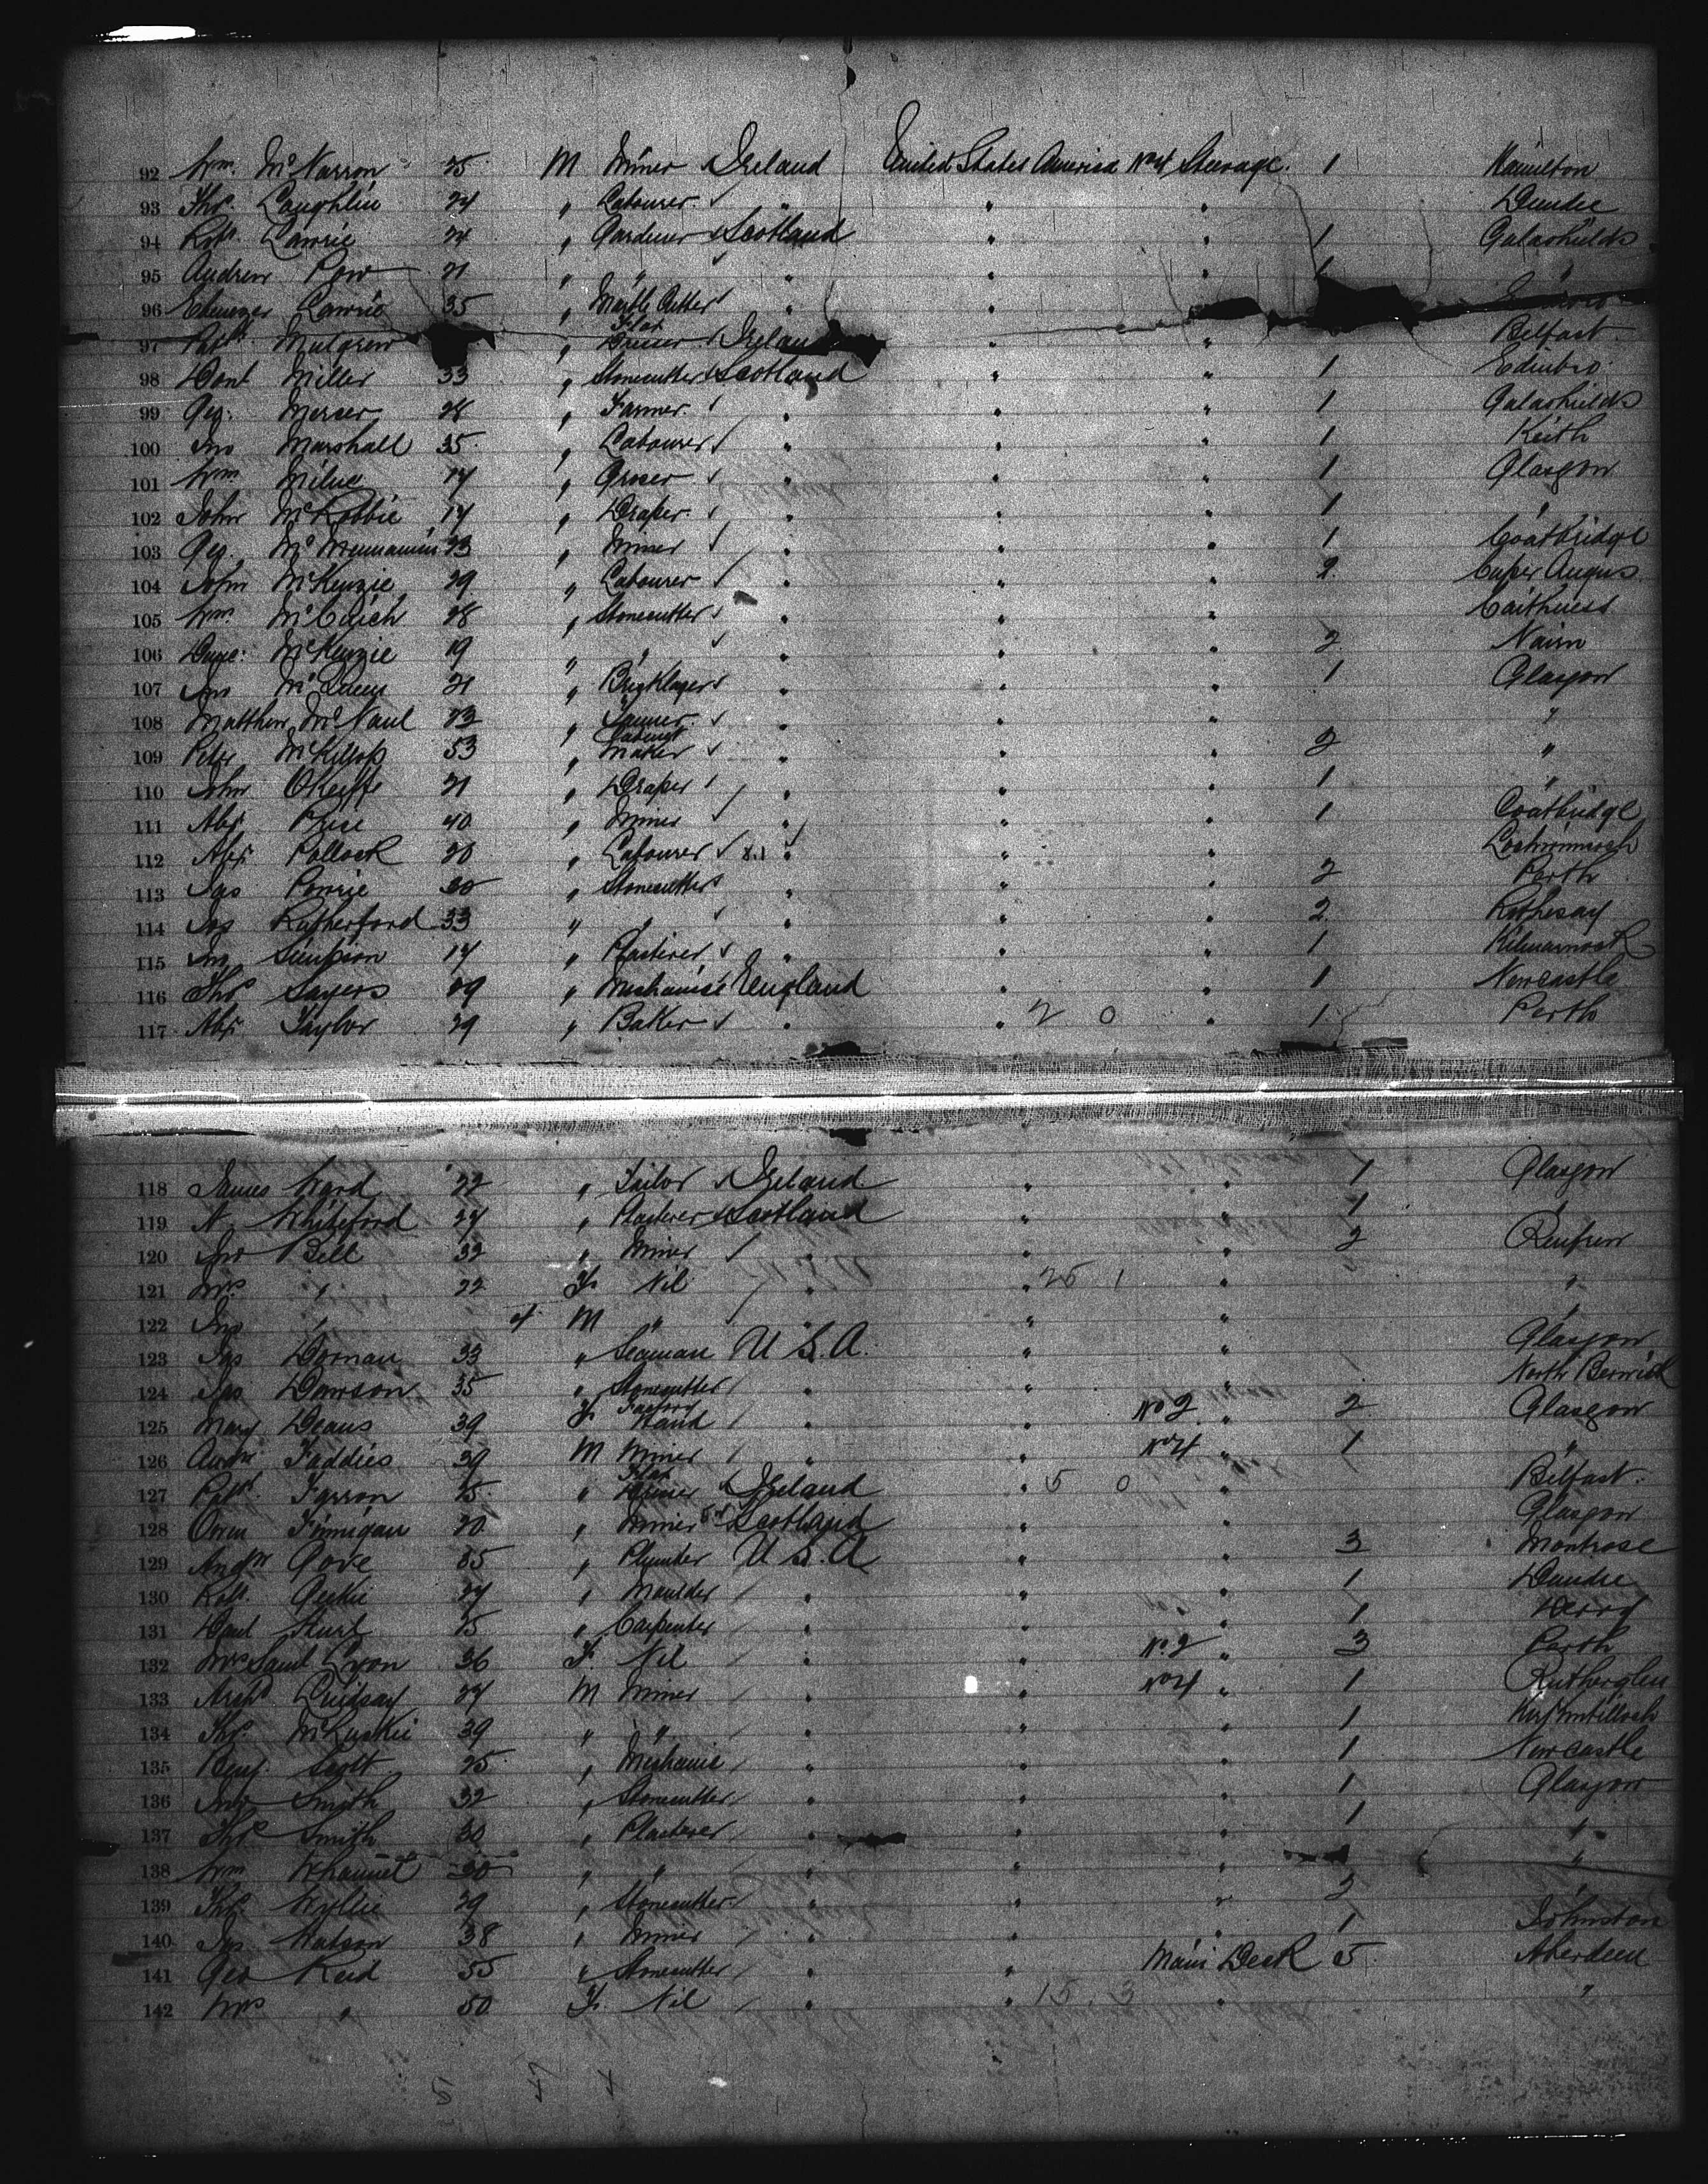 92 Wm. McNarron 25 M Miner Ireland United States America No 4 Steerage. 1 Hamilton
93 Thos. Laughlin 24 " Labourer " " " Dundee
94 Robt. Lawrie 24 " Gardener Scotland " " 1 Galashields
95 Andrew Pow 21 " " " " " 1 "
96 Ebenezer Lawrie 35 " Marble Cutter " " "
97 Patk. Mulgrew " Flax Dresser Ireland " " Belfast
98 Danl Miller 33 " Stonecutter Scotland " " 1 Edinbro.
99 Geo. Mercer 28 " Farmer " " " 1 Galashields
100 Jno Marshall 35 " Labourer " " " 1 Keith
101 Wm. Milne 17 " Grocer " " " 1 Glasgow
102 John McRobbie 17 " Draper " " " 1 "
103 Geo. 23 " Miner " " " 1 Coatbridge
104 John McKenzie 29 " Labourer " " " 2 Cuper Angus
105 Wm. 28 " Stonecutter " " " Caithness
106 McKenzie 19 " " " " " 2 Nairn
107 Jno 21 " Bricklayer " " " 1 Glasgow
108 Matthew McNaul 23 " " " " "
109 Peter McKillop 53 " Cabinet Maker " " " 2 "
110 John OKeiffe 21 " Draper " " " 1 "
111 Alex. Price 40 " Miner " " " 1 Coatbridge
112 Alex. Pollock 20 " Labourer " " " Lochwinnoch
113 Jas Powrie 30 " Stonecutter " " " 2 Perth
114 Jas Rutherford 33 " " " " 2 Rothesay
115 Jno Simpson 17 " Plasterer " " " 1 Kilmarnock
116 Thos Sayers 29 " Mechanic England " " 1 Newcastle
117 Alex. Taylor 29 " Baker " " 2 0 " 1 Perth
118 James Ward 22 " Tailor Ireland " " 1 Glasgow
119 N. Whiteford 24 " Plasterer Scotland " " 1 "
120 Jno Bell 32 " Miner " " " 2 Renfrew
121 Mrs " 22 F. Nil " " 25 1 " "
122 Jno " 4 M " " " "
123 Jas Dornan 33 " Seaman U S. A. " " Glasgow
124 Jas Dawson 35 " Stonecutter " " " North Berwick
125 Mary Deans 39 F. Factory Hand " " No 2 " 2 Glasgow
126 Andw Faddies 39 M Miner " " No 4 " 1 "
127 Patk. Farron 25 " Flax Dresser Ireland " 5 0 " Belfast.
128 Owen Finnigan 20 " Miner Scotland " " Glasgow
129 Andw Gove 35 " Plumber U S. A " " 3 Montrose
130 Robt. Geekie 27 " Moulder " " " 1 Dundee
131 Danl Hurl 25 " Carpenter " " " 1 Derry
132 Mrs Saml Lyon 36 F. Nil " " No. 2 " 3 Perth
133 Archd Lindsay 27 M Miner " " No 4 " 1 Rutherglen
134 Thos. McLuskie 39 " " " " " 1 Kirkintilloch
135 Benj. Scott 25 " Mechanic " " " 1 Newcastle
136 Jno Smith 32 " Stonecutter " " " 1 Glasgow
137 Thos Smith 30 " Plasterer " " " 1 "
138 Wm 30 " " " " " "
139 Thos. Wyllie 29 " Stonecutter " " " 2 "
140 Jas Watson 38 " Miner " " " 1 Johnston
141 Geo Reid 55 " Stonecutter " " Main Deck 5 Aberdeen
142 Mrs " 50 F. Nil " " 15. 3 " "